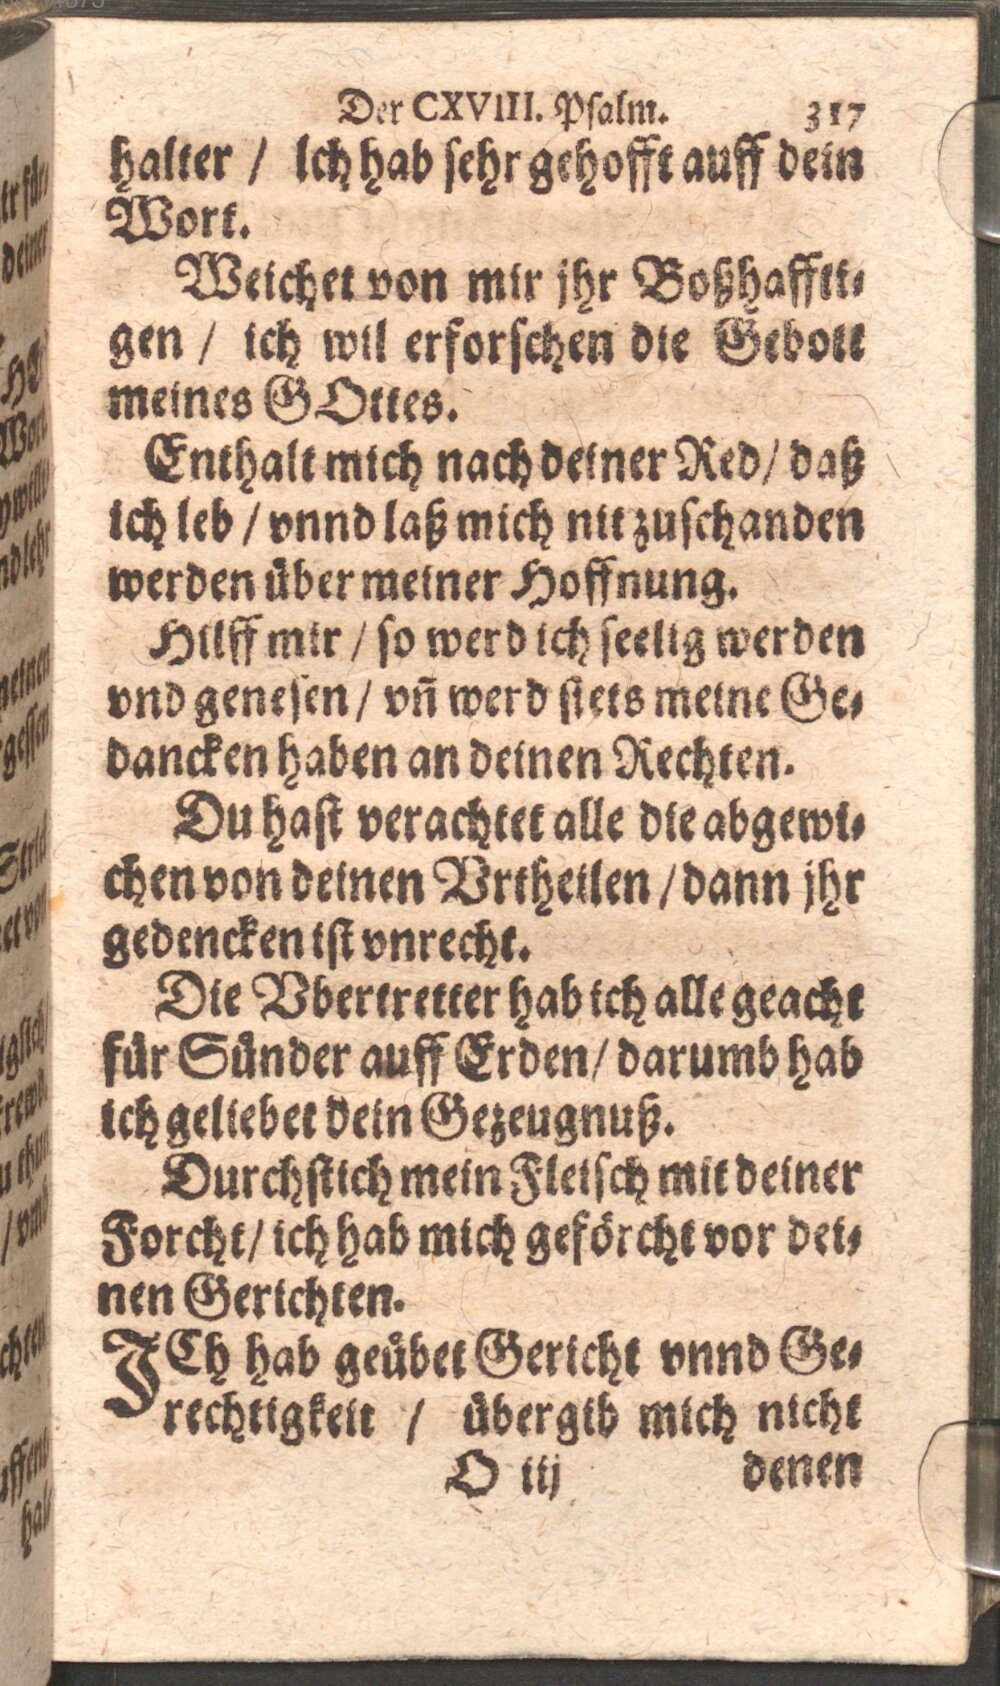 Der CXVIII. Psalm. 317
halter / Ich hab sehr gehofft auff dein
Wort.
Weichet von mir jhr Boßhaffti⸗
gen / ich wil erforschen die Gebott
meines GOttes.
Enthalt mich nach deiner Red / daß
ich leb / vnnd laß mich nit zuschanden
werden über meiner Hoffnung.
Hilff mir / so werd ich seelig werden
vnd genesen / vñ werd stets meine Ge⸗
dancken haben an deinen Rechten.
Du hast verachtet alle die abgewi⸗
chen von deinen Vrtheilen / dann jhr
gedencken ist vnrecht.
Die Vbertretter hab ich alle geacht
für Sünder auff Erden / darumb hab
ich geliebet dein Gezeugnuß.
Durchstich mein Fleisch mit deiner
Forcht / ich hab mich geförcht vor dei⸗
nen Gerichten.
ICh hab geübet Gericht vnnd Ge⸗
rechtigkeit / übergib mich nicht
O iij denen